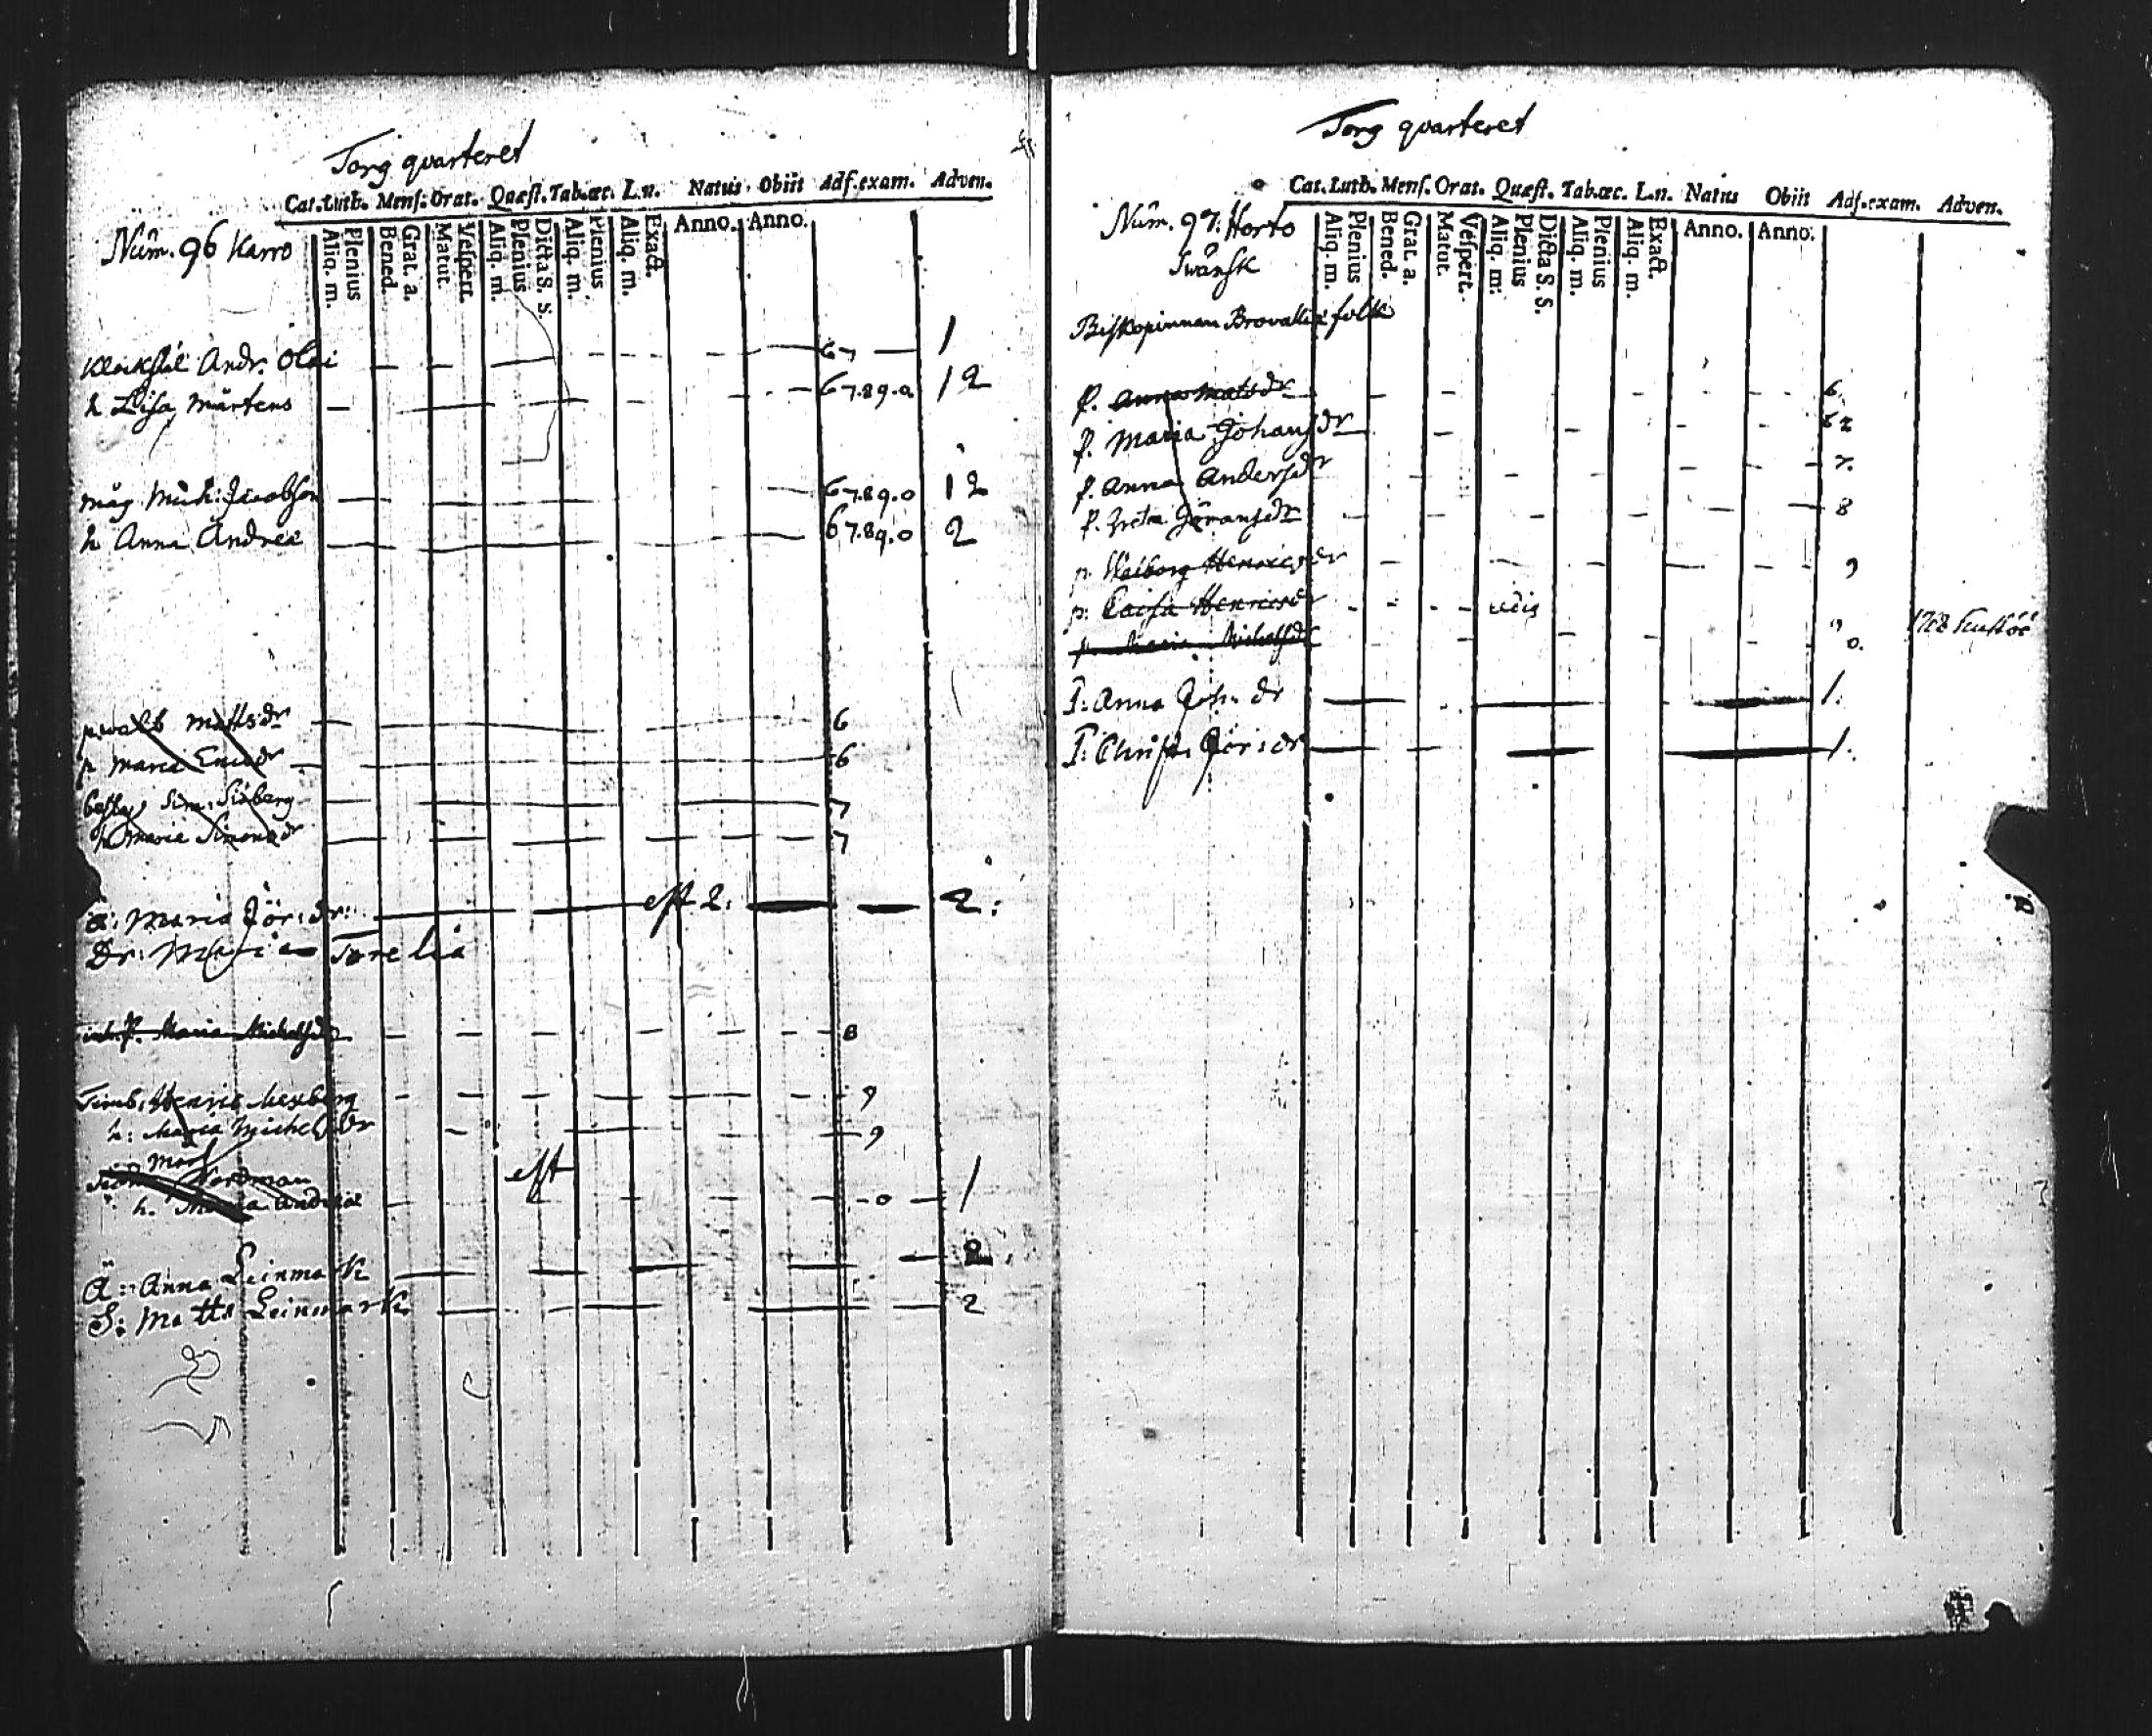 Torg quarteret
Cat. Luth. Mens. Orat. Quæst. Tab. œc. L.n. Natus Obiit Adf. exam. Adven.
Num. 96 Karro
Aliq. m. Plenius Bened. Grat. a. Matut. Vespert. Aliq. m. Plenius Dicta S. S. Aliq. m. Plenius Aliq. m. Exact. Anno. Anno.
Klockstöl Andr. Olai 67 1
h Lisa Mårtens 67.89.0 12
måg Mich: Jacobson 67.89.0 12
h Anna Andreæ 67.89.0 2
p walb Mattsdr 6
p Maria Ericsdr 6
Sim: Siöberg 7
h Maria Simonsdr 7
Ä: Maria Jör: dr: eft 2. 2:
Dr: Maria
p. Maria Michelsdr 8
Timb. Henric Mexberg 9
h: Maria Michelsdr 9
Nordman eft
h. Maria Andreæ 0 1
Ä: Anna Leinmark 2.
S: Matts Leinmark 2
Torg quarteret
Cat. Luth. Mens. Orat. Quæst. Tab. œc. L.n. Natus Obiit Adf. exam. Adven.
Num. 97. Horto
Swänsk
Aliq. m. Plenius Bened. Grat. a. Matut. Vespert. Aliq. m. Plenius Dicta S. S. Aliq. m. Plenius Aliq. m. Exact. Anno. Anno.
Biskopinnan Brovallii folk
p. Anna Matsdr 6
p. Maria Johansdr
p. Anna Andersdr 7.
p. Greta Jöransdr 8
p. Walborg Henricsdr 9
p: Caisa Henricsdr
p. Maria Michelsdr 0.
P: Anna Joh: dr 1.
P: Christ. Jör: dr 1.